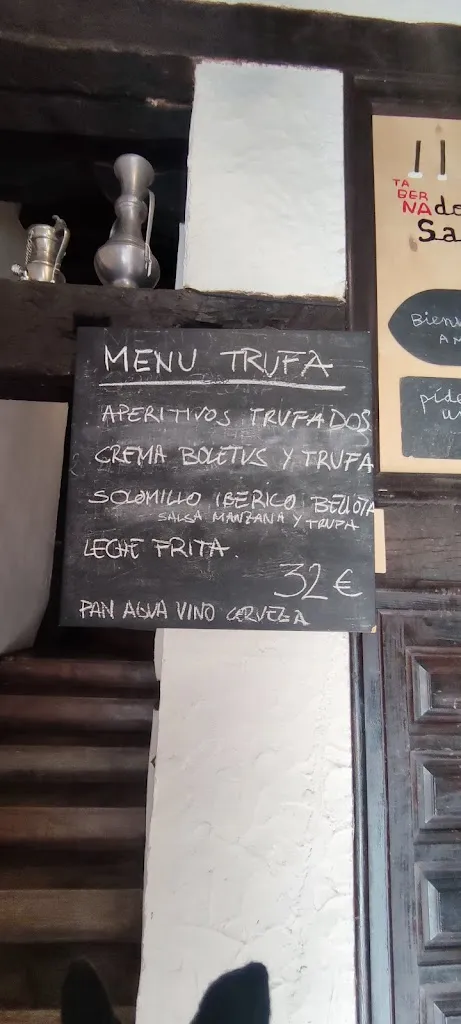 MENU TRUFA
APERITIVOS TRUFADOS
CREMA BOLETUS Y TRUFA
SOLOMILLO IBERICO BELLOTA
SALSA MANZANA Y TRUFA
LECHE FRITA.
32 €
PAN AGUA VINO CERVEZA
TA
BER
NA